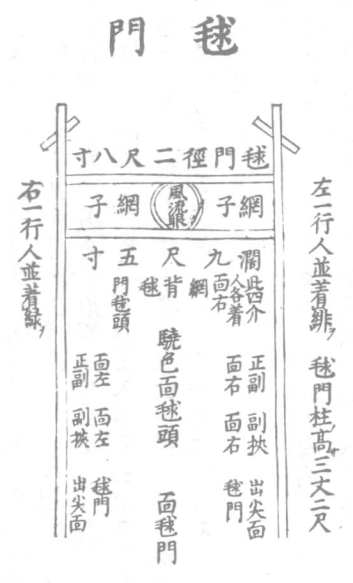 毬門
毬門徑二尺八寸
網子
風流眼
網子
濶九尺五寸
左一行人並着緋 毬門柱高三丈二尺
此四介
人各着
面右
網
背
毬
門毬頭
正副 副挾 出尖面
面右 面右 毬門
驍色面毬頭 面毬門
面左 面左 毬門
正副 副挾 出尖面
右一行人並着緑